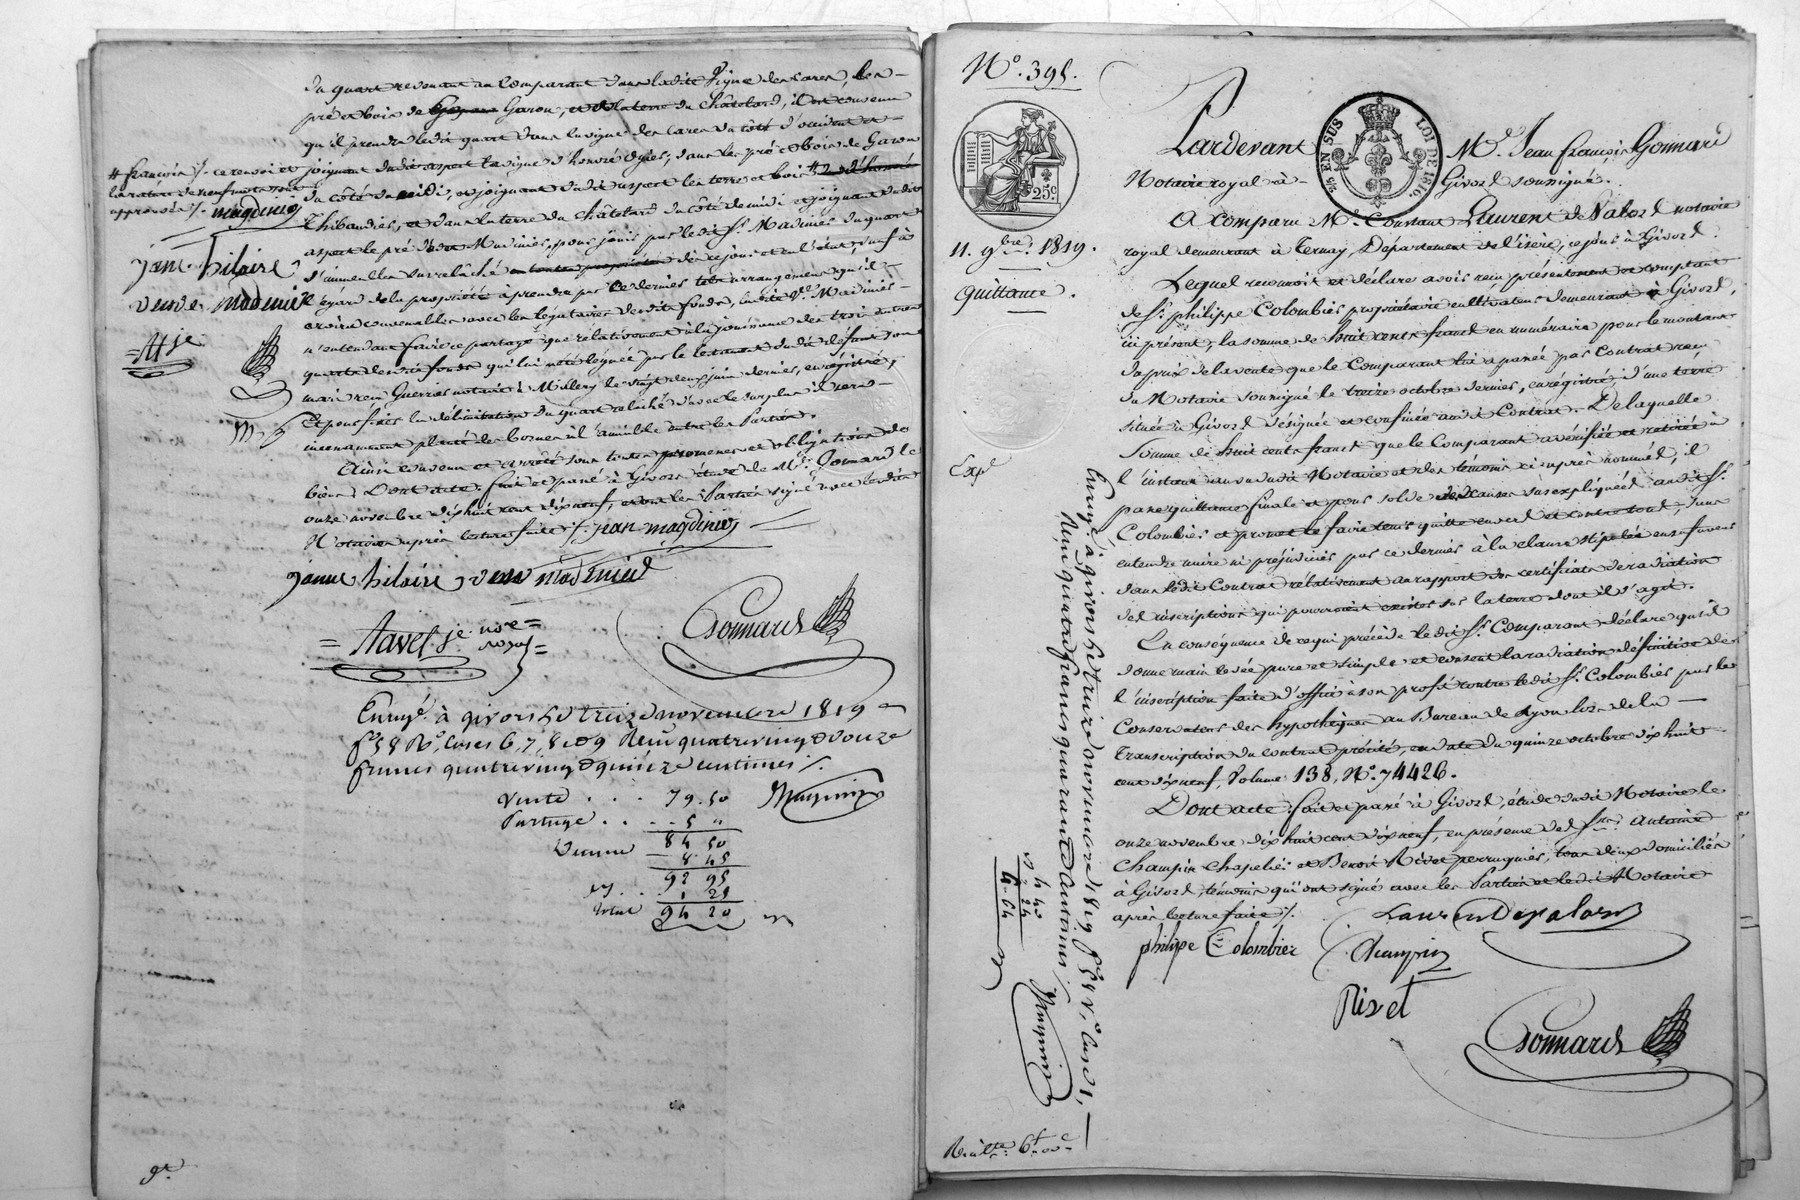 du quart revenant au Comparant dans ladite Vigne des cares, les
pré et bois de Garon, et de la terre du Châtelard, il est convenu
qu'il prendra ledit quart dans la vigne des cares du côté d'occident et
joignant dudit aspect la vigne d'honoré ogier; dans les pré et bois de Garon
du côté du midi, et joignant dudit aspect les terre et bois #
Thibaudier, et dans la terre du Châtelard du côté de midi et joignant dudit
aspect le pré dudit Madinier, pour jouir par ledit Sr. Madinier du quart
à l'égard de la propriété à prendre par ce dernier tels arrangemens qu'il
croira convenables avec les légataires desdits fonds, ladite Ve. Madinier
n'entendant faire ce partage que relativement à la jouissance des trois autres
quarts desdits fonds qui lui a été léguée par le testament dudit défunt son
mari reçu Guerras notaire à Millery le vingt deux juin dernier, enregistré;
Et pour fixer la délimitation du quart relâché d'avec le surplus il sera
incessamment planté des bornes à l'amiable entre les Parties.
Ainsi convenu et arrêté sous toutes promesses et obligations de
biens. Dont acte: fait et passé à Givors étude de Me. Gonnard le
onze novembre dix huit cent dix neuf, et ont les Parties signé avec lesdits
Notaires après lecture faite ·/. jean magdinier
janne hilaire veuve madinier
# françois ·/. ce renvoi et
la rature de neuf mots sont
approuvés ·/. magdinier
jane hilaire
veuve madinier
Navel je. nore royal
Gonnard
Enregé. à givors le treize novembre 1819
fo 58 Ro. cases 6, 7, 8 et 9 Reçu quatre vingt douze
francs quatre vingt quinze centimes ·/.
Vente . . . 79.50
Partage . . . 5 "
84 50
Dixme 8 45
92 95
1 25
total 94 20
No. 395.
25c
11. 9bre. 1819.
Quittance.
Expé
25 EN SUS
LOI DE 1816
Pardevant Me. Jean françois Gonnard
Notaire royal à Givors soussigné.
A comparu Me. Constant Laurent de Valors notaire
royal demeurant à Ternay, Département de l'isère, ce jour à Givors.
Lequel reconnoit et déclare avoir reçu présentement et comptant
de Sr. philippe Colombier propriétaire cultivateur demeurant à Givors,
ici présent, la somme de huit cents francs en numéraire pour le montant
du prix de la vente que le Comparant lui a passée par Contrat reçu
du Notaire soussigné le treize octobre dernier, enregistré, d'une terre
située à Givors désignée et confinée audit Contrat. De laquelle
Somme de huit cents francs que le Comparant a vérifiée et retirée à
l'instant au vu dudit Notaire et des témoins ci après nommés, il
passe quittance finale et pour solde des causes susexpliquées audit Sr.
Colombier et promet le faire tenir quitte envers et contre tous, sans
entendre nuire ni préjudicier par ce dernier à la clause stipulée en sa faveur
dans ledit Contrat relativement au rapport du certificat de radiation
des inscriptions qui pourroient exister sur la terre dont il s'agit.
En conséquence de ce qui précède ledit Sr. Comparant déclare qu'il
donne main levée pure et simple et consent la radiation définitive de
l'inscription faite d'office à son profit contre ledit Sr. Colombier par le
Conservateur des hypothèques au Bureau de Lyon lors de la
Transcription du contrat précité, en date du quinze octobre dix huit
cent dix neuf, Volume 138, No. 74426.
Dont acte: fait et passé à Givors, étude dudit Notaire le
onze novembre dix huit cent dix neuf, en présence des Srs. Antoine
Champin chapelier et Benoit Rivet perruquier, tous deux domiciliés
à Givors, témoins qui ont signé avec les Parties et ledit Notaire
après lecture faite ·/. Laurent Devalors
philippe Colombier
Champin
Rivet
Gonnard
Enregé. à givors le treize novembre 1819 fo 58 vo. case 1,
Reçu quatre francs quarante centimes
4 40
24
4.64
6f